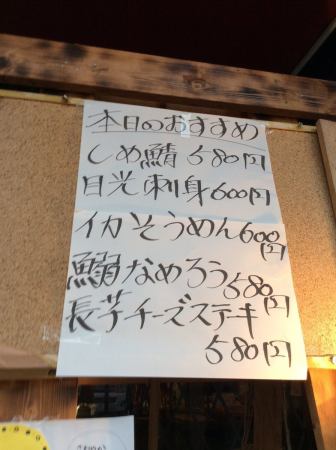 本日のおすすめ
しめ鯖 580円
目光刺身600円
イカそうめん600円
鰯なめろう580円
長芋チーズステキ
580円